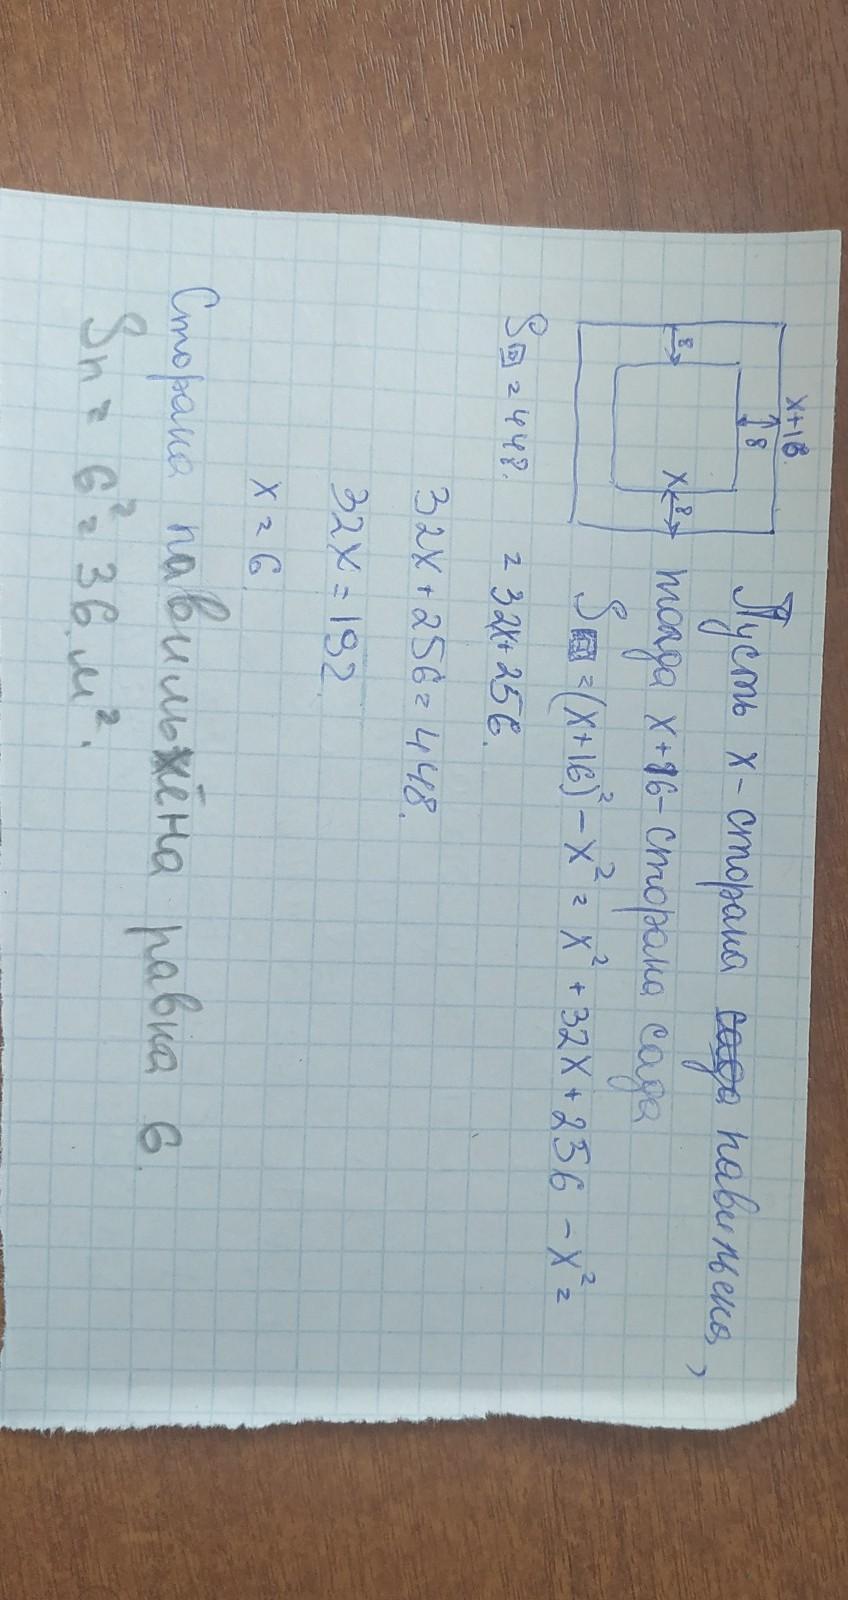 x+16.
8
8
x
8
Пусть x - сторона сада павильена,
тогда x+16 - сторона сада
S = (x+16)² - x² = x² + 32x + 256 - x² =
S = 448. = 32x+256.
32x + 256 = 448.
32x = 192
x = 6.
Сторона павильжёна равна 6.
Sп = 6² = 36 м².